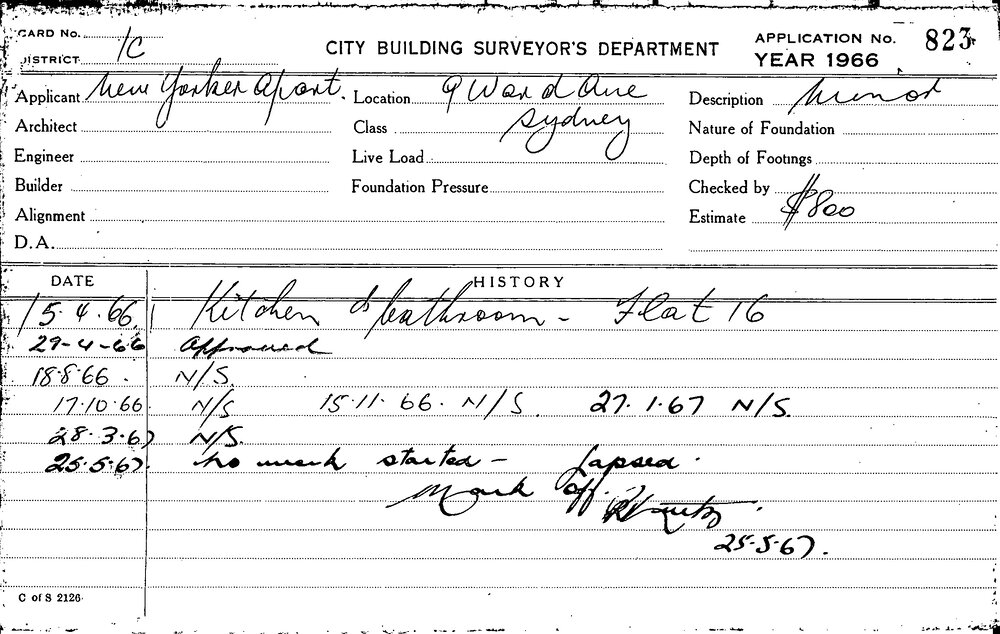 CARD No.
DISTRICT 1C
CITY BUILDING SURVEYOR'S DEPARTMENT
APPLICATION No. 823
YEAR 1966
Applicant New Yorker Apart. Location 9 Ward Ave Description Minor
Architect Class Sydney Nature of Foundation
Engineer Live Load Depth of Footings
Builder Foundation Pressure Checked by
Alignment Estimate $800
D.A.
DATE HISTORY
15.4.66 Kitchen & bathroom - Flat 16
29-4-66 Approved
18.8.66. N/S.
17.10.66. N/S 15.11.66. N/S. 27.1.67 N/S.
28.3.67 N/S.
25.5.67. No work started - lapsed.
Mark off.
25.5.67.
C of S 2126